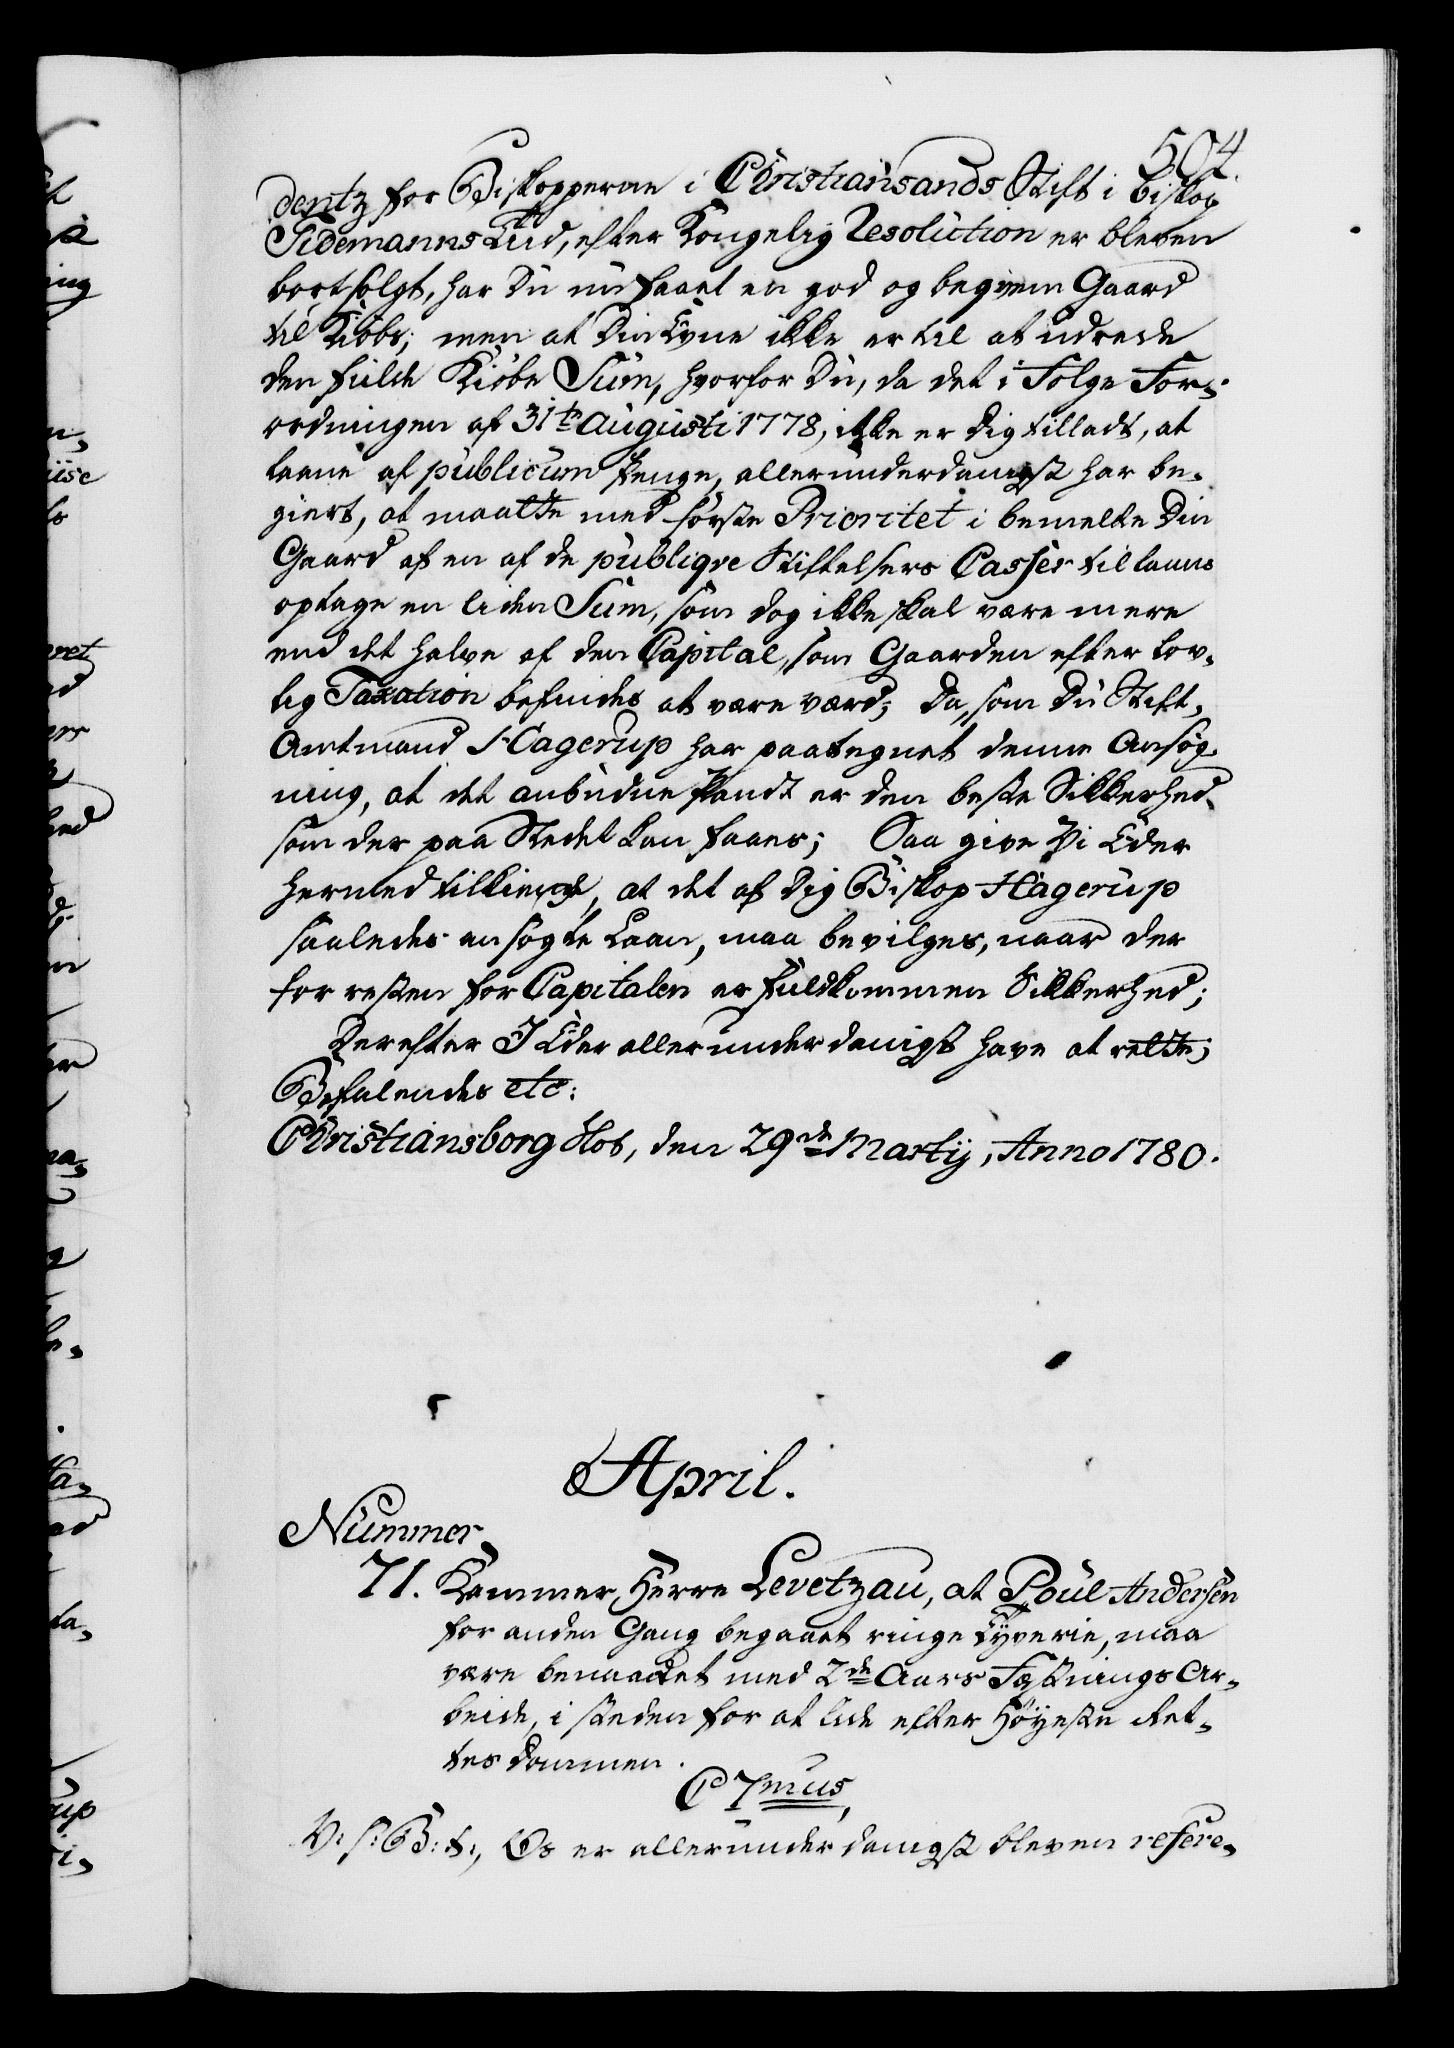 504.
dentz for Biskopperne i Christiansands Stift i Biskop
Tidemanns Tiid, efter Kongelig Resolution er bleven
bortsolgt, har Du nu faaet en god og beqvem Gaard
til Kiøbs; men at Din Evne ikke er til at udrede
den fulde Kiøbe Sum, hvorfor Du, da det i Følge For-
ordningen af 31te Augusti 1778, ikke er Dig tilladt, at
laane af publicum Penge, allerunderdanigst har be-
giert, at maatte med første Prioritet i bemelte Din
Gaard af en af de publiqve Stiftelsers Casser til laans
optage en liden Sum, som dog ikke skal være mere
end det halve af den Capital, som Gaarden efter lov-
lig Taxation befindes at være værd; Da, som Du Stift-
Amtmand Hagerup har paategnet denne Ansøg-
ning, at det anbudne Pandt er den beste Sikkerhed,
som der paa Stedet kan faaes; Saa give Vi Eder
hermed tilkiende, at det af Dig Biskop Hagerup
saaledes ansøgte Laan, maa bevilges, naar der
for resten for Capitalen er fuldkommen Sikkerhed;
Derefter I Eder allerunderdanigst have at rette;
Befalendes etc:
Christiansborg Slot, den 29de Martij, Anno 1780.
April.
Nummer
71. Kammer Herre Levetzau, at Poul Andersen
for anden Gang begaaet ringe Tyverie, maa
være benaadet med 2de Aars Fæstnings Ar-
beide, i steden for at lide efter Høyeste Ret-
tes Dommen.
C 7mus,
V: s: B: t:, Os er allerunderdanigst bleven refere-